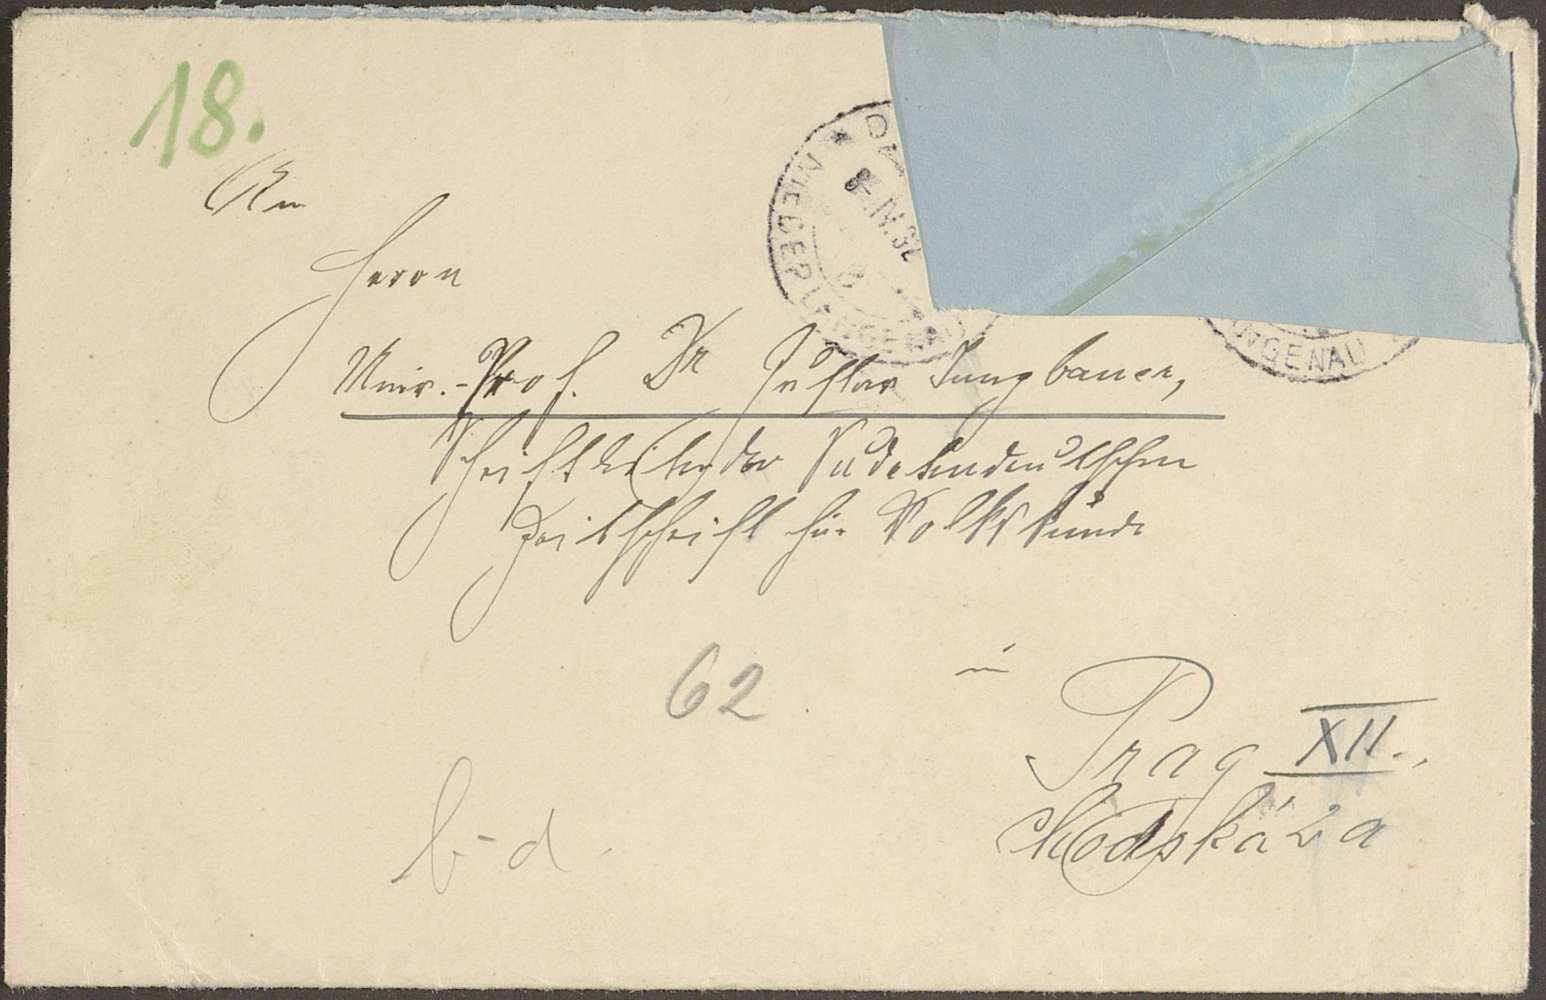 18.
An
Herrn
Univ.-Prof. Dr Gustav Jungbauer,
Schriftleiter der Sudetendeutschen
Zeitschrift für Volkskunde
62
in
Prag XII.,
b-d
NIEDER LANGENAU
IV.32
NGENAU